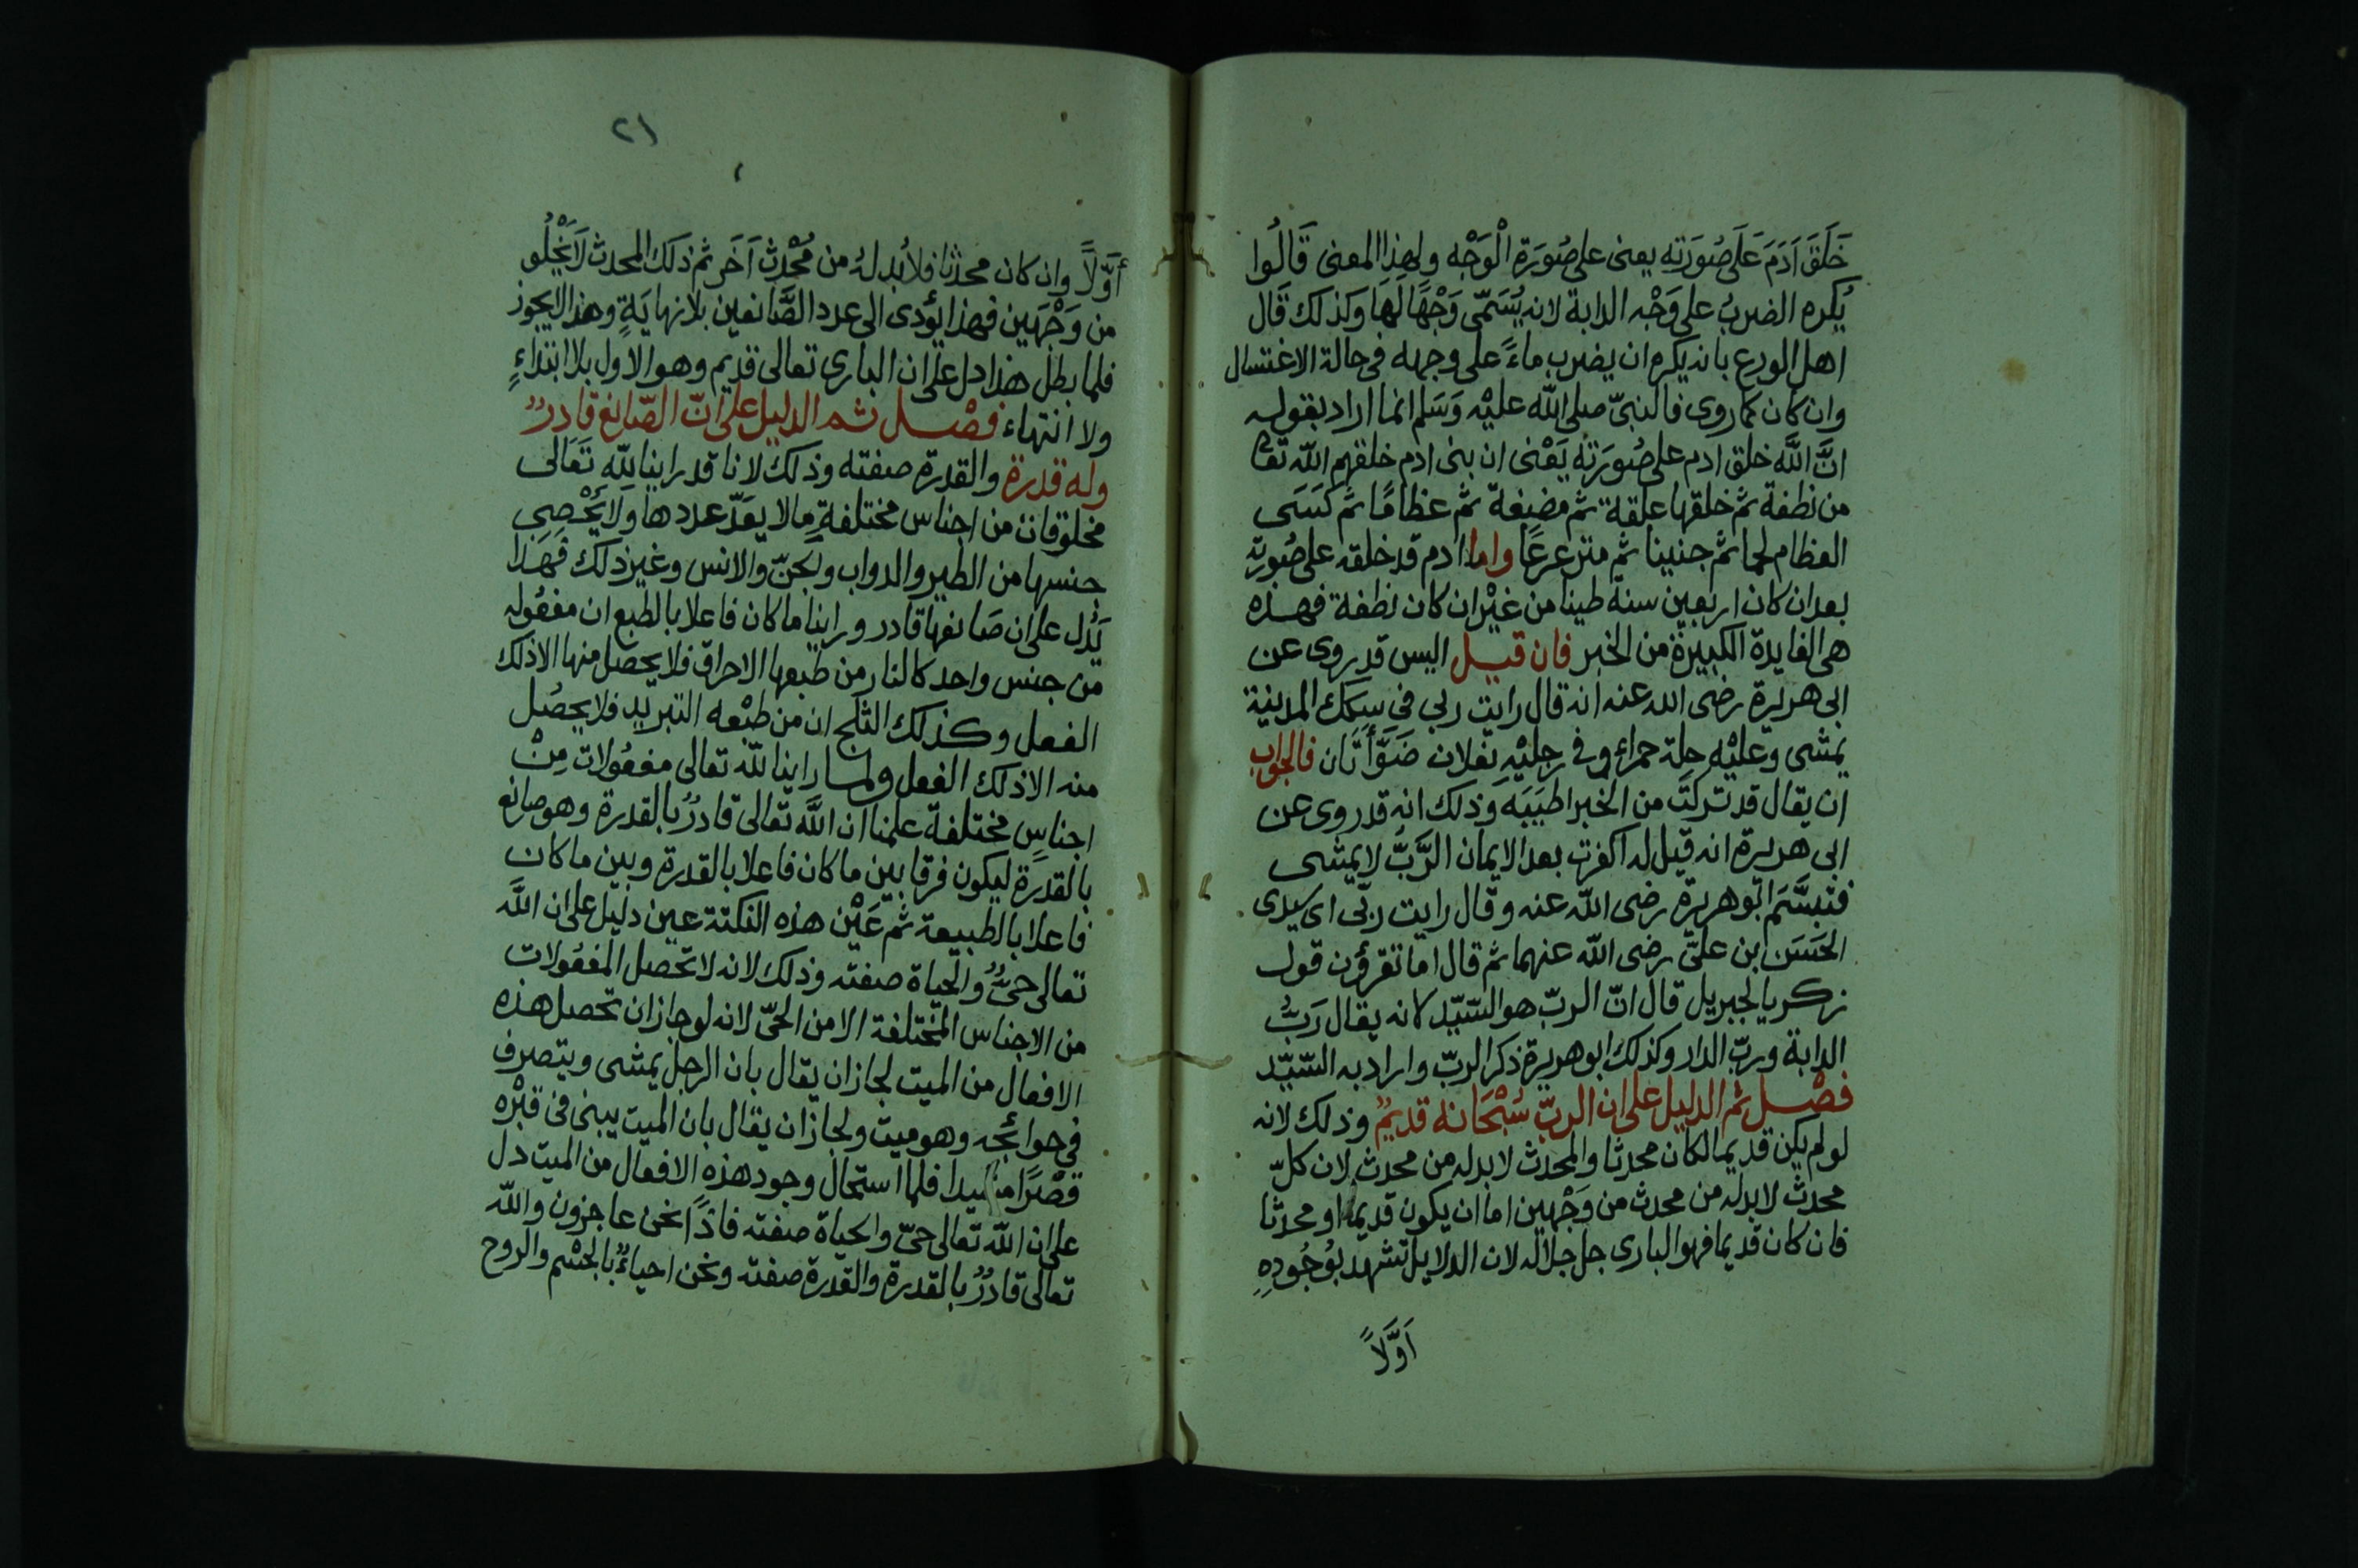 خَلَقَ اَدَمَ عَلَى صُورَتِه يعنى على صُورَة الْوَجْه ولهذا المعنى قَالُوا
يُكره الضربُ على وَجْه الدابة لانه يُسَمّى وَجْهًا لَهَا وكذلك قَال
اهل الورع بانه يكره ان يضرب ماءً على وجهه فى حالة الاغتسال
وان كان كما روى فالنبىّ صلى اللّه عليْه وَسَلم انما اراد بقوله
انَّ اللَّه خلق ادم على صُورَته يَعْنى ان بنى ادم خلقهم اللّه تعا
من نطفة ثم خلقها علقة ثم مضغة ثم عظامًا ثم كسَى
العظام لحما ثم جنينا ثم مترعرعًا واما ادم قد خلقه على صُورته
بعد ان كان اربعين سنة طينا من غيْر ان كان نطفة فهذه
هى الفايدة الكبيرة من الخبر فان قيل اليس قد يروى عن
ابى هريرة رضى الله عنه انه قال رايت ربى فى سِكَك المدينة
يمشى وعليْه حلة حمراء وفى رجليْه نعلان ضَوَّأتَان فالجواب
ان يقال قد تركتَ من الخبر اطيَبَه وذلك انه قد روى عن
ابى هريرة انه قيل له اكفرت بعد الايمان الرَّبُّ لا يمشى
فتبسَّمَ ابو هريرة رضى اللّه عنه وقال رايت ربّى اى سيدى
الحَسَن ابن علىّ رضى اللّه عنهما ثم قال اما تقرؤن قول
زكريا لجبريل قال انّ الربّ هو السّيّد لانه يقال رَبُّ
الدابة وربّ الدار وكذلك ابو هريرة ذكر الربّ واراد به السّيّد
فصْل ثم الدليل على ان الربّ سُبْحَانه قديمٌ وذلك لانه
لو لم يكن قديما لكان محدثا والمحدث لا بد له من محدث لان كلّ
محدث لا بد له من محدث من وَجْهين اما ان يكون قديما او محدثا
فان كان قديما فهو البارى جل جلاله لان الدلايل تشهد بوُجُودِهِ
اَوَّلاً
٢١
أوَّلاً وان كان محدثا فلا بُد لهُ من مُحْدِث اَخَر ثم ذلَك المحدث لا يَخْلُو
من وَجْهَين فهذا يؤدى الى عدد الصَّانعين بلا نهايَةٍ وهذا لا يجوز
فلما بطل هذا دل على ان البارى تعالى قديم وهو الاول بلا ابتداءٍ
ولا انتهاء فصْل ثم الدليل على انّ الصّانع قادرٌ
وله قدرة والقدرة صفته وذلك لانا قد راينا للّه تعَالى
مخلوقات من اجناس مختلفةٍ ما لا يعَدّ عددها ولا يُحْصى
جنسها من الطير والدواب والجنّ والانس وغير ذلك فهَذا
يَدُل على ان صَانعها قادر وراينا ما كان فاعلا بالطبع ان مفعُوله
من جنس واحد كالنار من طبعها الاحراق فلا يحصل منها الا ذلك
الفعل وكذلك الثلج ان من طبْعه التبريد فلا يحصُل
منه الا ذلك الفعل ولما راينا للّه تعالى مفعُولات مِنْ
اجناسٍ مختلفة علمنا ان اللَّه تعالى قادرٌ بالقدرة وهو صانع
بالقدرة ليكون فرقا بين ما كان فاعلا بالقدرة وبين ما كان
فاعلا بالطبيعة ثم عَيْن هذه النكتة عين دليل على ان اللَّه
تعالى حىٌّ والحياة صفته وذلك لانه لا تحصل المفعُولات
من الاجناس المختلفة الا من الحىّ لانه لو جاز ان تحصل هذه
الافعال من الميت لجاز ان يقال بان الرجل يمشى ويتصرف
فى حوائجه وهو ميت ولجاز ان يقال بان الميت يبنى فى قبْره
قصْرًا مشيدا فلما استحال وجود هذه الافعال من الميت دل
على ان اللّه تعالى حىّ والحياة صفته فاذًا نحن عاجزون واللّه
تعالى قادرٌ بالقدرة والقدرة صفته ونحن احياءٌ بالجسْم والروح